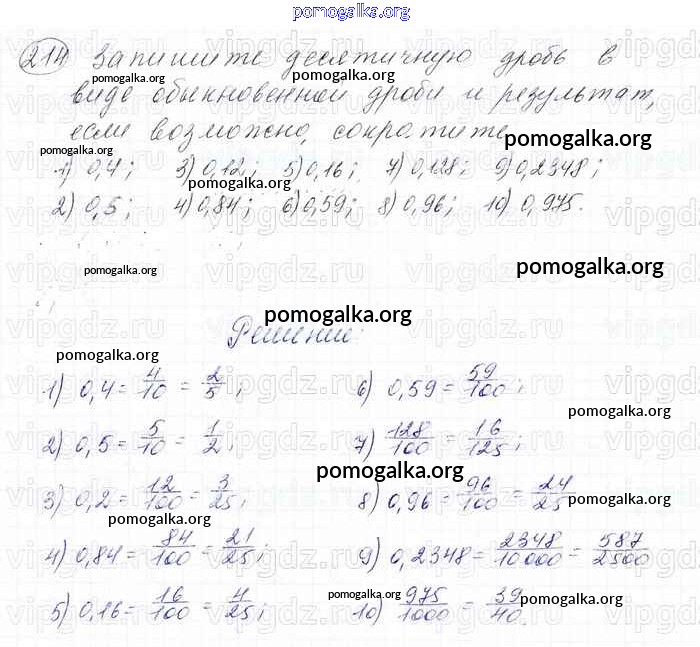 pomogalka.org
214 Запишите десятичную дробь в
pomogalka.org
виде обыкновенной дроби и результат,
если возможно, сократите
pomogalka.org
pomogalka.org
1) 0,4; 3) 0,12; 5) 0,16; 7) 0,128; 9) 0,2348;
pomogalka.org
2) 0,5; 4) 0,84; 6) 0,59; 8) 0,96; 10) 0,975.
pomogalka.org
pomogalka.org
pomogalka.org
Решение:
pomogalka.org
1) 0,4 = 4/10 = 2/5; 6) 0,59 = 59/100;
pomogalka.org
2) 0,5 = 5/10 = 1/2; 7) 128/100 = 16/125;
pomogalka.org
3) 0,2 = 12/100 = 3/25; 8) 0,96 = 96/100 = 24/25
pomogalka.org
pomogalka.org
4) 0,84 = 84/100 = 21/25; 9) 0,2348 = 2348/10000 = 587/2500
pomogalka.org
pomogalka.org
5) 0,16 = 16/100 = 4/25; 10) 975/1000 = 39/40.
vipgdz.ru